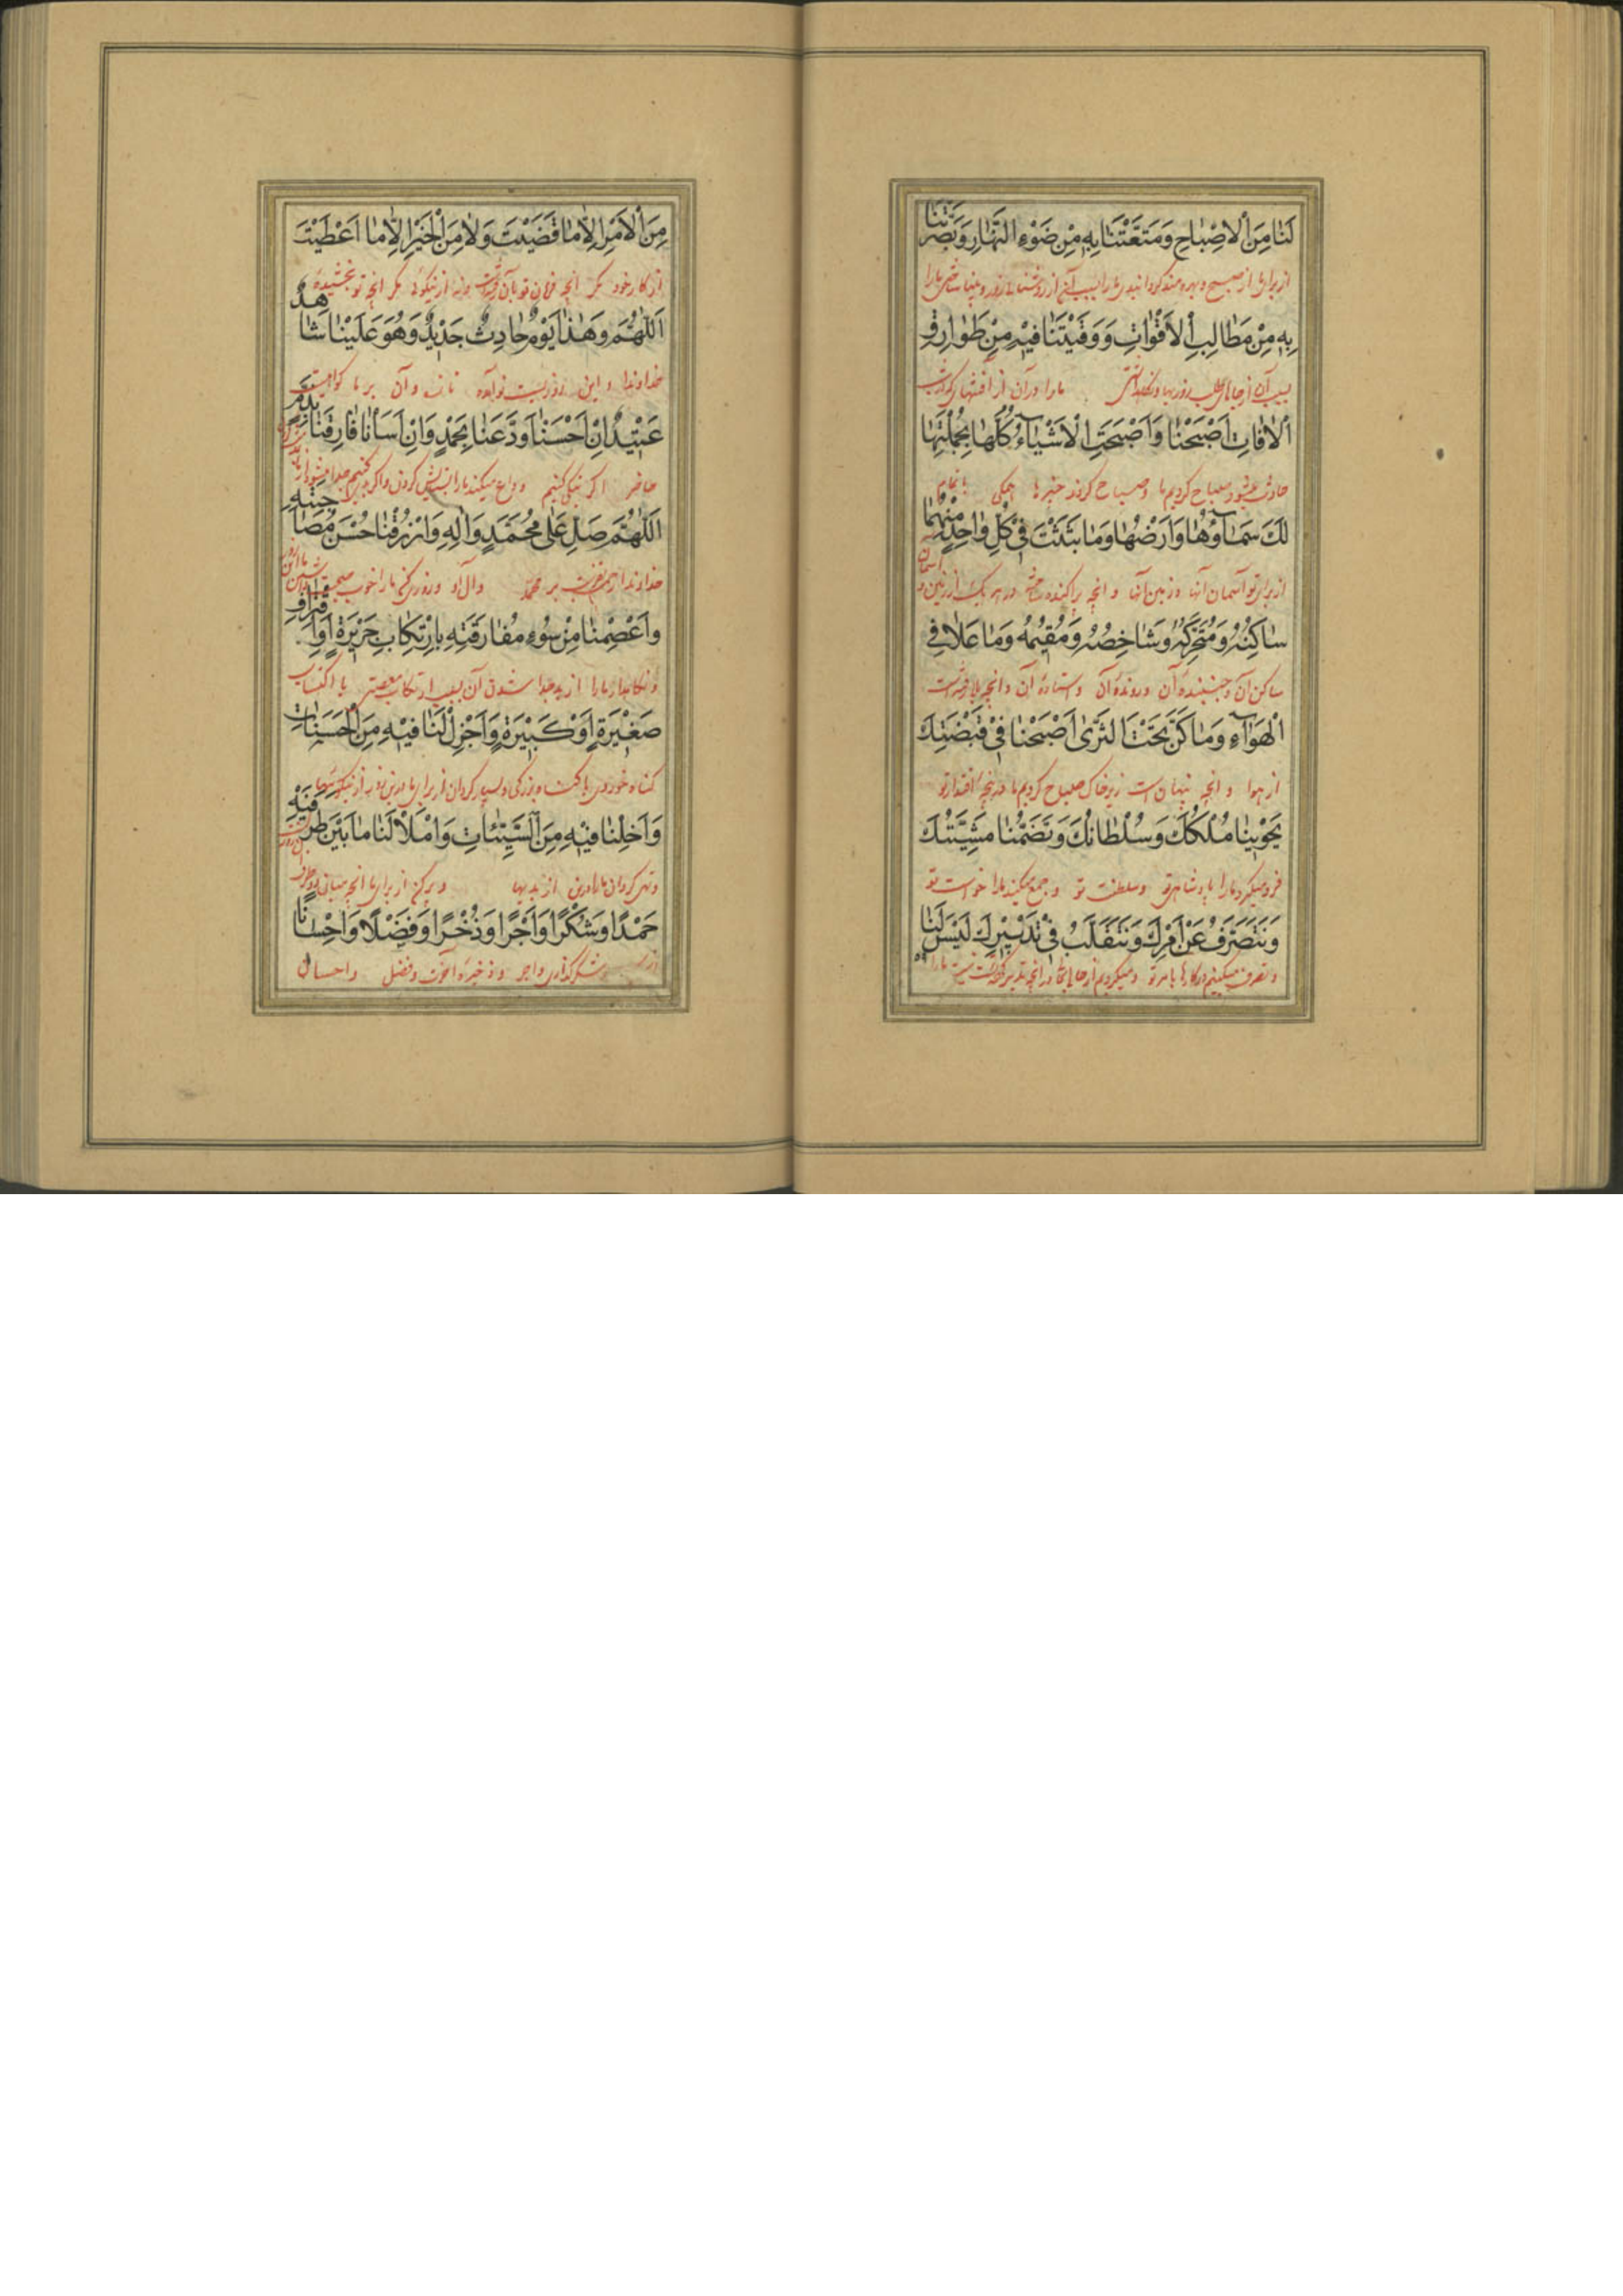 لَنَا مِنَ الْاِصْبَاحِ وَمَتَّعْتَنَا بِهِ مِنْ ضَوْءِ النَّهَارِ وَبَصَّرْتَنَا
از برای ما از صبح و بهره‌مند گردانیدی ما را بسبب آن از روشنائی روز و بینا ساختی ما را
بِهِ مِنْ مَطَالِبِ الْاَقْوَاتِ وَوَقَيْتَنَا فِيْهِ مِنْ طَوَارِقِ
بسبب آن از جاهای طلب روزیها و نگاهداشتی ما را در آن از آفتهای که در شب
الْاٰفَاتِ اَصْبَحْنَا وَاَصْبَحَتِ الْاَشْيَآءُ كُلُّهَا بِجُمْلَتِهَا
حادث میشود صباح کردیم ما و صباح کردند چیزها همگی بتمام
لَكَ سَمَآؤُهَا وَاَرْضُهَا وَمَا بَثَثْتَ فِيْ كُلِّ وَاحِدٍ مِنْهُمَا
از برای تو آسمان آنها و زمین آنها و انچه پراکنده ساختی در هر یک از زمین و آسمان
سَاكِنُهُ وَمُتَحَرِّكُهُ وَشَاخِصُهُ وَمُقِيْمُهُ وَمَا عَلَا فِي
ساکن آن و جنبنده آن و رونده آن و استاده آن و انچه بالا رفته است
الْهَوَآءِ وَمَا كَنَّ تَحْتَ الثَّرٰى اَصْبَحْنَا فِيْ قَبْضَتِكَ
از هوا و انچه پنهان است زیر خاک صباح کردیم ما در پنجه اقتدار تو
يَحْوِيْنَا مُلْكُكَ وَسُلْطَانُكَ وَتَضُمُّنَا مَشِيَّتُكَ
فرو میگیرد ما را پادشاهی تو و سلطنت تو و جمع میکند ما را خواست تو
وَنَتَصَرَّفُ عَنْ اَمْرِكَ وَنَتَقَلَّبُ فِيْ تَدْبِيْرِكَ لَيْسَ لَنَا
و تصرف میکنیم در کارها بامر تو و میگردیم از حالی بحالی در انچه تدبیر کرده نیست ما را
مِنَ الْاَمْرِ اِلَّا مَا قَضَيْتَ وَلَا مِنَ الْخَيْرِ اِلَّا مَا اَعْطَيْتَ
از کار خود مگر انچه فرمان تو بآن رفته است و نه از نیکوئی مگر انچه تو بخشیده
اَللّٰهُمَّ وَهٰذَا يَوْمٌ حَادِثٌ جَدِيْدٌ وَهُوَ عَلَيْنَا شَاهِدٌ
خداوندا و این روزیست نو آمده تازه و آن بر ما گواهیست
عَتِيْدٌ اِنْ اَحْسَنَّا وَدَّعَنَا بِحَمْدٍ وَاِنْ اَسَأْنَا فَارَقَنَا بِذَمٍّ
حاضر اگر نیکی کنیم وداع میکند ما را بستایش کردن و اگر بد کنیم جدا میشود از ما
اَللّٰهُمَّ صَلِّ عَلٰى مُحَمَّدٍ وَاٰلِهِ وَارْزُقْنَا حُسْنَ مُصَاحَبَتِهِ
خداوندا رحمت بفرست بر محمد و آل او و روزی کن ما را خوب صحبت داشتن با این روز
وَاعْصِمْنَا مِنْ سُوْءِ مُفَارَقَتِهِ بِارْتِكَابِ جَرِيْرَةٍ اَوِ اقْتِرَافِ
و نگاهدار ما را از بد جدا شدن آن بسبب ارتکاب معصیتی یا اکتساب
صَغِيْرَةٍ اَوْ كَبِيْرَةٍ وَاَجْزِلْ لَنَا فِيْهِ مِنَ الْحَسَنَاتِ
گناه خوردی یا گناه بزرگی و بسیار گردان از برای ما در این روز از نیکوئیها
وَاَخْلِنَا فِيْهِ مِنَ السَّيِّئَاتِ وَامْلَأْ لَنَا مَا بَيْنَ طَرَفَيْهِ
و تهی گردان ما را در این از بدیها و پر کن از برای ما انچه میانه دو طرف
حَمْدًا وَشُكْرًا وَاَجْرًا وَذُخْرًا وَفَضْلًا وَاِحْسَانًا
از و شکر گذاری و اجر و ذخیره آخرت و فضل و احسان